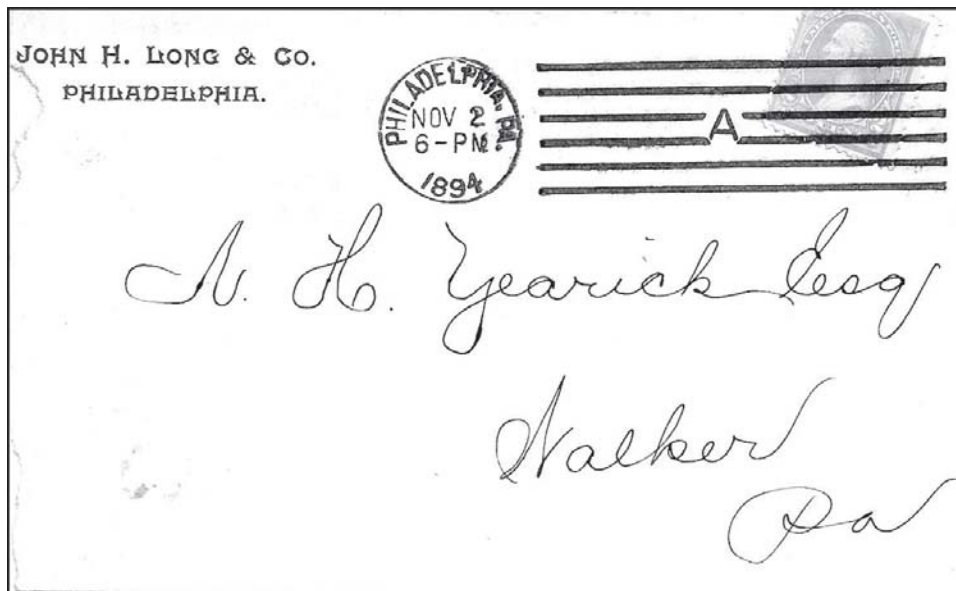 JOHN H. LONG & CO.
PHILADELPHIA.
PHILADELPHIA, PA.
NOV 2
6-PM
1894
A
N. H. Yearick Esq
Walker
Pa